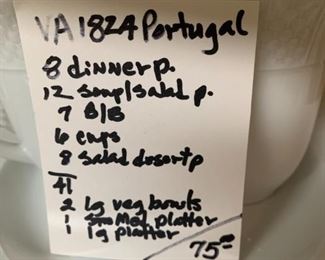 VA 1824 Portugal
8 dinner p.
12 soup/salad p.
7 B/B
6 cups
8 salad desert p
41
2 lg veg bowls
1 smMed platter
1 lg platter
75.00